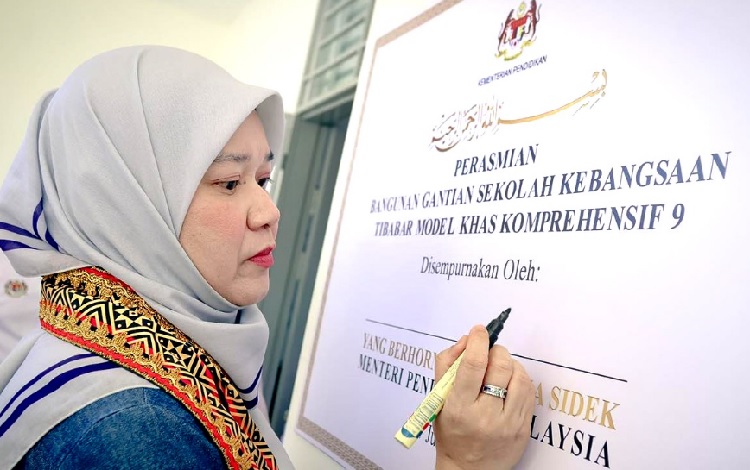 KEMENTERIAN PENDIDIKAN
بسم الله الرحمن الرحيم
PERASMIAN
BANGUNAN GANTIAN SEKOLAH KEBANGSAAN
TIBABAR MODEL KHAS KOMPREHENSIF 9
Disempurnakan Oleh:
YANG SIDEK
MENTERI